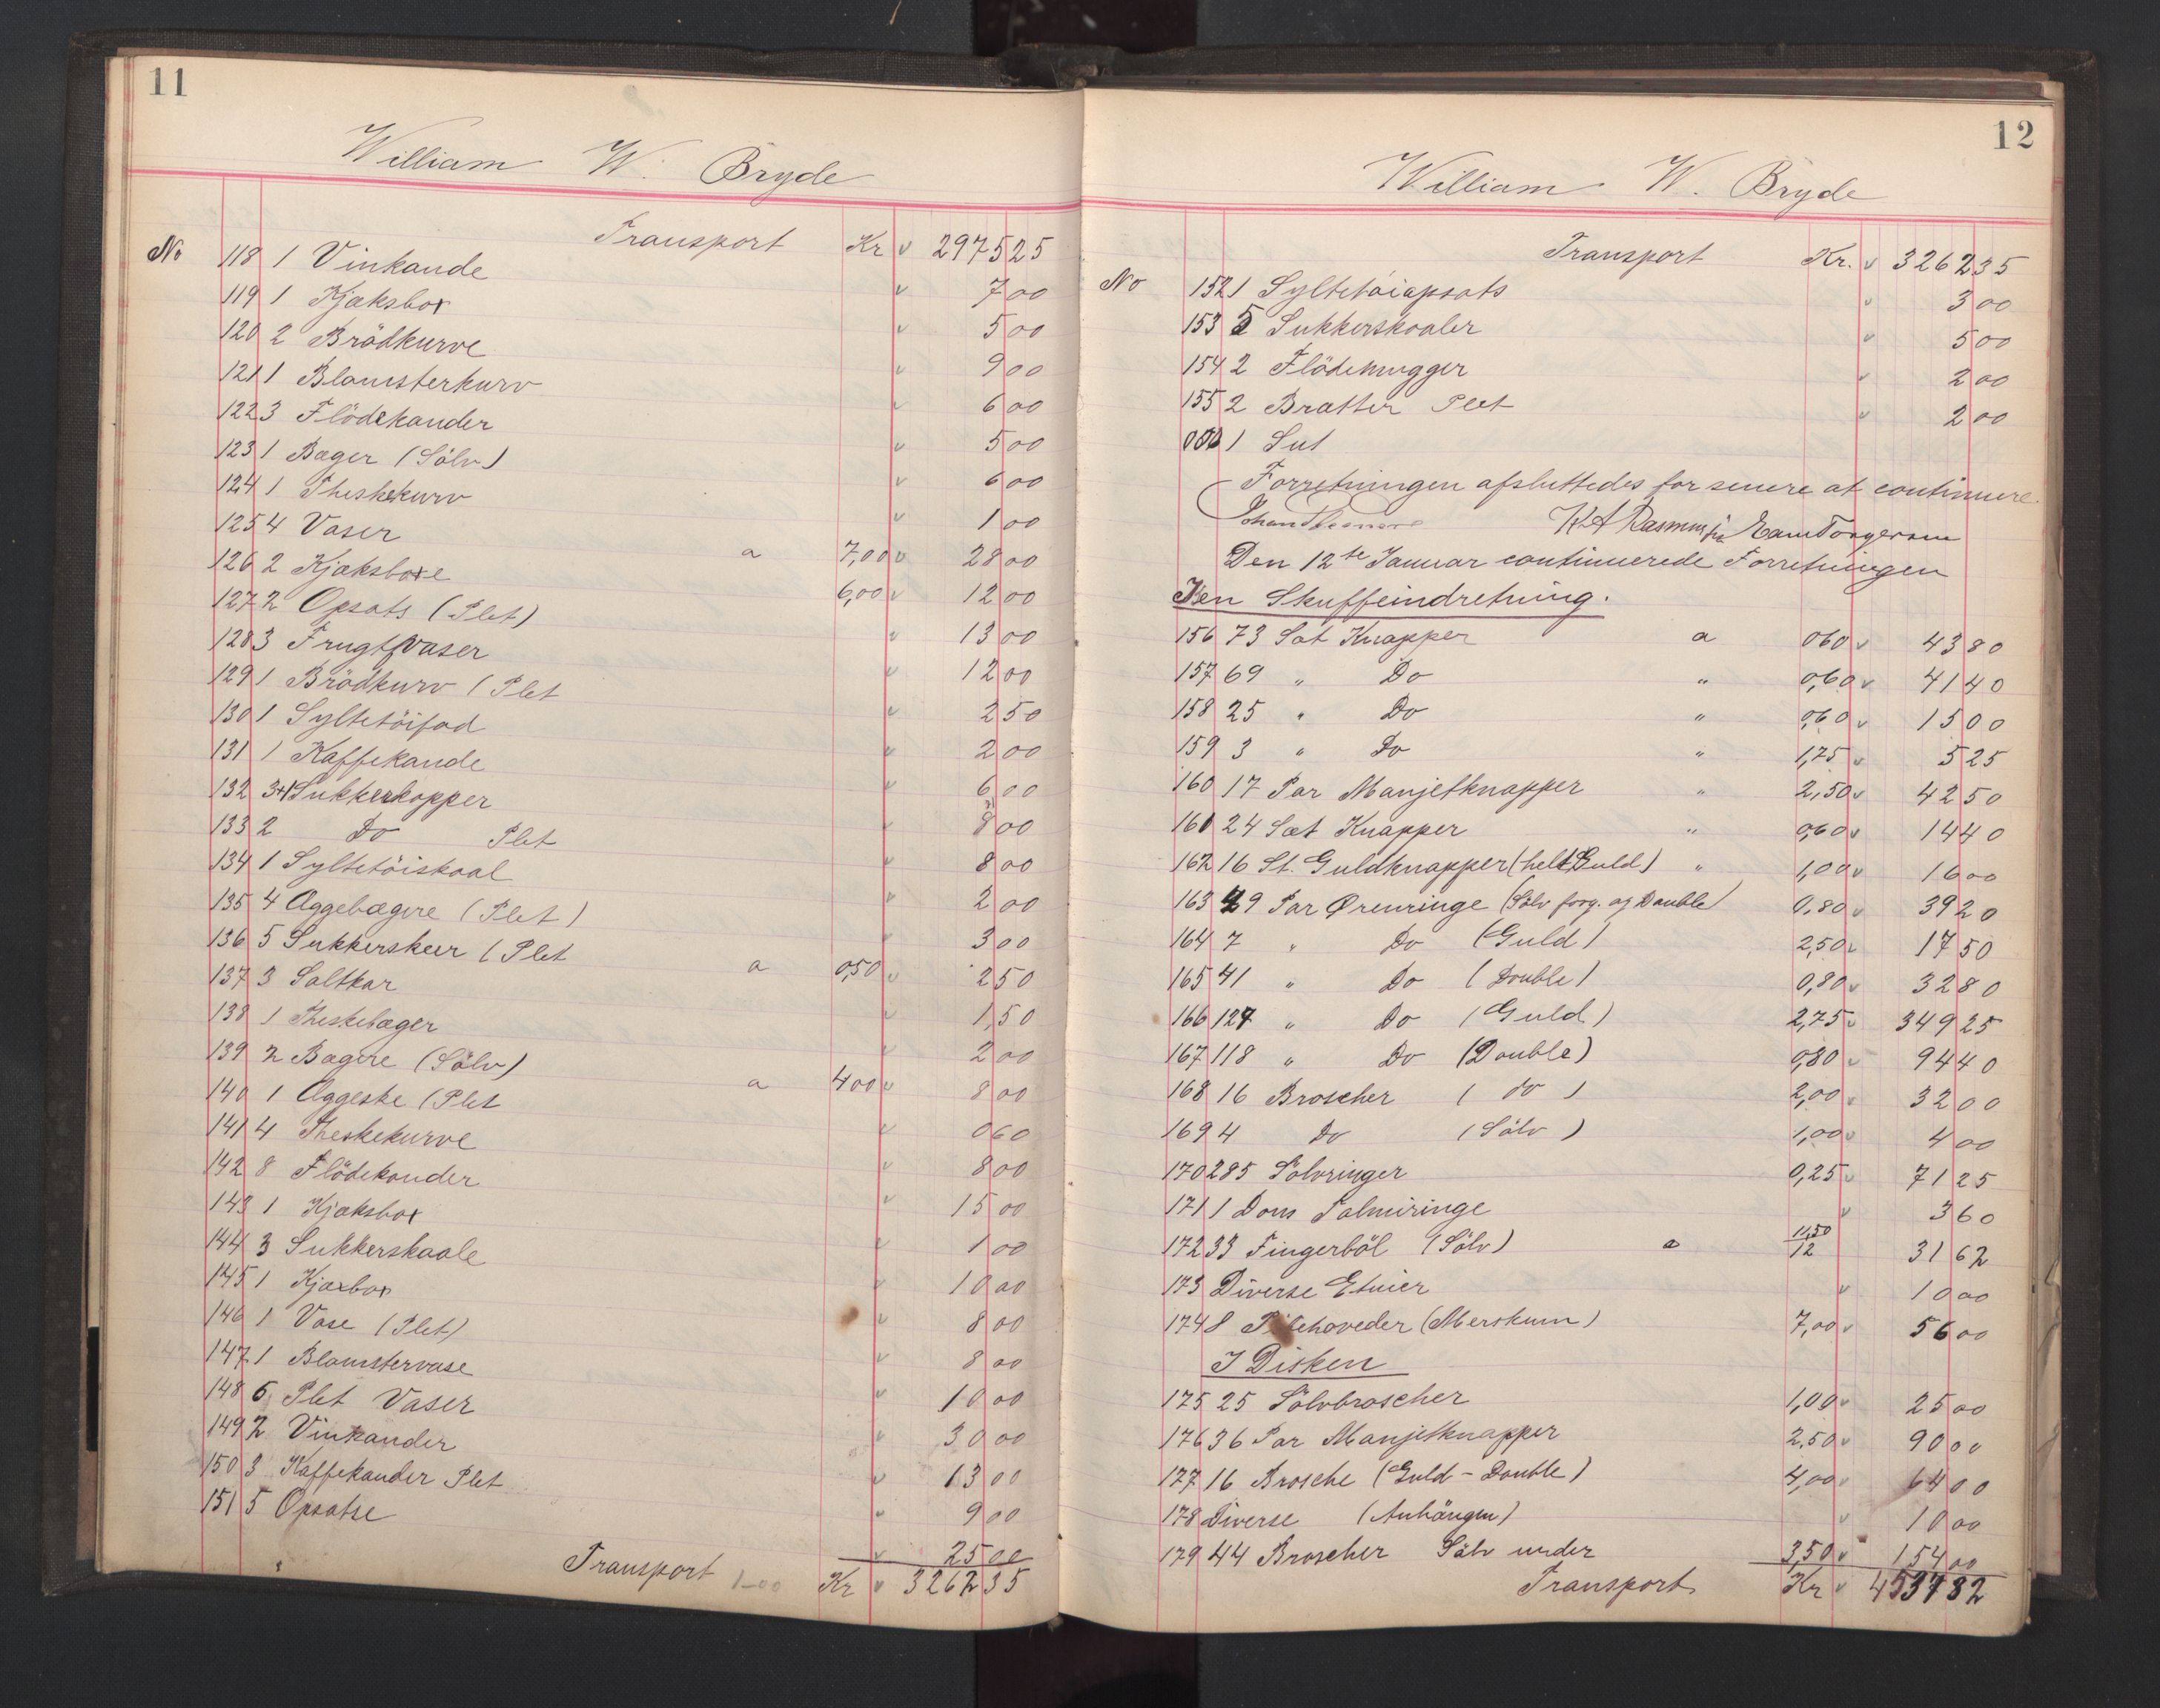 11
William W. Bryde
Transport Kr v 2975 25
No 118 1 Vinkande v 7 00
119 1 Kjæksbox v 5 00
120 2 Brödkurve v 9 00
121 1 Blomsterkurv v 6 00
122 3 Flödekander v 5 00
123 1 Bæger (Sölv) v 6 00
124 1 Theskekurv v 1 00
125 4 Vaser a 7,00 v 28 00
126 2 Kjæksboxe 6,00 v 12 00
127 2 Opsats (Plet) v 13 00
128 3 Frugtvaser v 12 00
129 1 Brödkurv (Plet v 2 50
130 1 Syltetöifad v 2 00
131 1 Kaffekande v 6 00
132 3+1 Sukkerkopper v 8 00
133 2 Do Plet v 8 00
134 1 Syltetöiskaal v 2 00
135 4 Æggebægere (Plet) v 3 00
136 5 Sukkerskeer (Plet a 0,50 v 2 50
137 3 Saltkar v 1,50
138 1 Theskebæger v 2 00
139 2 Bægere (Sölv) a 4 00 v 8 00
140 1 Æggeske (Plet v 0 60
141 4 Theskekurve v 8 00
142 8 Flödekander v 15 00
143 1 Kjæksbox v 1 00
144 3 Sukkerskaale v 10 00
145 1 Kjæxbox v 8 00
146 1 Vase (Plet) v 8 00
147 1 Blomstervase v 10 00
148 6 Plet Vaser v 30 00
149 2 Vinkander v 13 00
150 3 Kaffekander Plet v 9 00
151 5 Opsatse v 25 00
Transport 1-00 Kr v 3262 35
12
William W. Bryde
Transport Kr. v 3262 35
No 152 1 Syltetöiapsats v 3 00
153 5 Sukkerskaaler v 5 00
154 2 Flödemugger v 2 00
155 2 Brætter Plet v 2 00
1
Forretningen afsluttedes for senere at continuere.
Den 12te Januar continuerede Forretningen
I en Skuffeindretning.
156 73 Sæt Knapper a 0 60 v 43 80
157 69 " Do " 0,60 v 41 40
158 25 " Do " 0,60 v 15 00
159 3 " Do " 1,75 v 5 25
160 17 Par Manjetknapper " 2,50 v 42 50
161 24 Sæt Knapper " 0,60 v 14 40
162 16 St. Guldknapper (helt Guld) " 1,00 v 16 00
163 49 Par Ørenringe (Sölv forg. og Double) 0,80 v 39 20
164 7 " Do (Guld) 2,50 v 17 50
165 41 " Do (Double) 0,80 v 32 80
166 127 " Do (Guld) 2,75 v 349 25
167 118 " Do (Double) 0,80 v 94 40
168 16 Broscher (do) 2,00 v 32 00
169 4 Do (Sölv) 1,00 v 4 00
170 285 Sölvringer 0,25 v 71 25
171 1 Dom Palmiringe v 3 60
172 33 Fingerböl (Sölv) a 11,50/12 31 62
173 Diverse Etuier v 10 00
174 8 Pibehoveder (Merskum) 7,00 v 56 00
I Disken
175 25 Sölvbroscher 1,00 v 25 00
176 36 Par Manjetknapper 2,50 v 90 00
177 16 Brosche (Guld - Double) 4,00 v 64 00
178 Diverse (Anhängen) v 10 00
179 44 Broscher Sölv under 3,50 v 154 00
Transport Kr v 4537 82